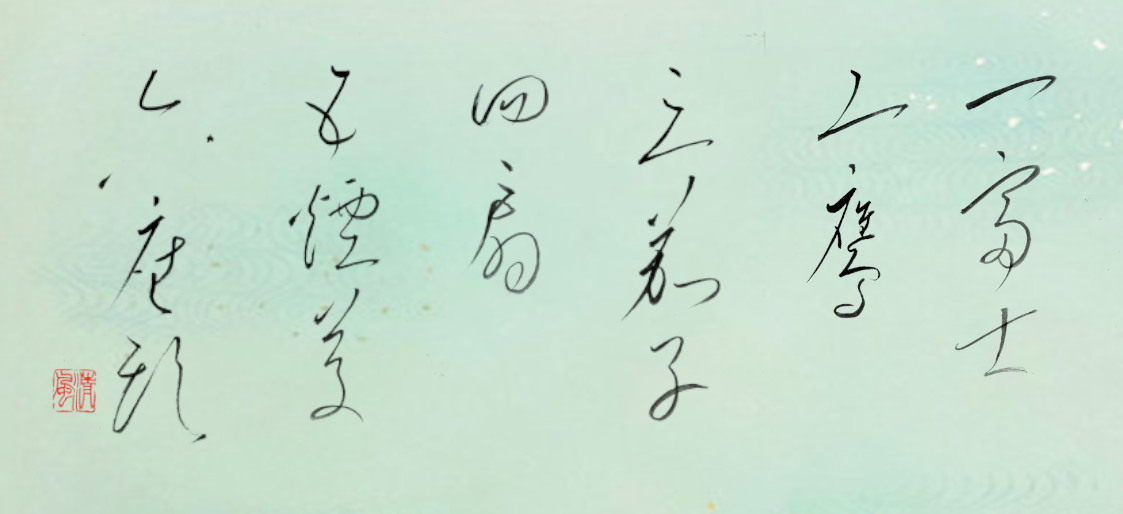 一富士
二鷹
三茄子
四扇
五煙草
六座頭
清風